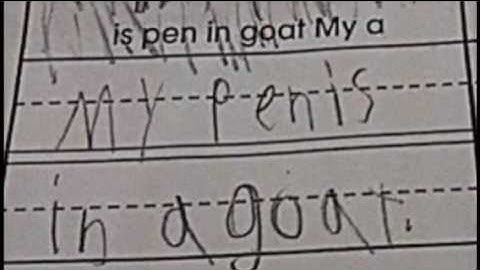 is pen in goat My a
My pen is
in a goat.